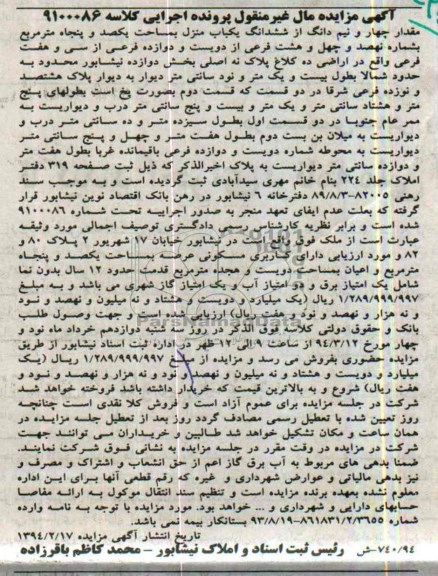 آگهی مزایده مال غیرمنقول پرونده اجرایی کلاسه ۹۱۰۰۰۸۶
مقدار چهار و نیم دانگ از ششدانگ یکباب منزل بمساحت یکصد و پنجاه مترمربع
بشماره نهصد و چهل و هشت فرعی از دویست و دوازده فرعی از سی و هفت
فرعی واقع در اراضی ده کلاغ پلاک نه اصلی بخش دوازده نیشابور محدود به
حدود شمالا بطول بیست و یک متر و نود سانتی متر دیوار به دیوار پلاک هشتصد
و نوزده فرعی شرقا در دو قسمت که قسمت دوم بصورت پخ است بطولهای پنج
متر و هشتاد سانتی متر و یک متر و بیست و پنج سانتی متر درب و دیواریست به
ممر عام جنوبا در دو قسمت اول بطول سیزده متر و ده سانتی متر درب و
دیواریست به میلان بن بست دوم بطول هفت متر و چهل و پنج سانتی متر
دیواریست به محوطه شماره دویست و دوازده فرعی باقیمانده غربا بطول هفت متر
و دوازده سانتی متر دیواریست به پلاک اخیرالذکر که ذیل ثبت صفحه ۳۱۹ دفتر
املاک جلد ۲۲۴ بنام خانم مهری سیدآبادی ثبت گردیده است و به موجب سند
رهنی ۸۲۰۰۵-۸۹/۸/۳ دفترخانه ۶ نیشابور در رهن بانک اقتصاد نوین نیشابور قرار
گرفته که بعلت عدم ایفای تعهد منجر به صدور اجراییه تحت شماره ۹۱۰۰۰۸۶
شده است و برابر نظریه کارشناس رسمی دادگستری توصیف اجمالی مورد وثیقه
عبارت است از ملک فوق واقع است در نیشابور خیابان ۱۷ شهریور ۲ پلاک ۸۰ و
۸۲ و مورد ارزیابی دارای کاربری مسکونی عرصه بمساحت یکصد و پنجاه
مترمربع و اعیان بمساحت دویست و هجده مترمربع قدمت حدود ۱۲ سال بدون نما
شامل یک امتیاز برق و دو امتیاز آب و یک امتیاز گاز شهری می باشد و به مبلغ
۱/۲۸۹/۹۹۹/۹۹۷ ریال (یک میلیارد و دویست و هشتاد و نه میلیون و نهصد و نود
و نه هزار و نهصد و نود و هفت ریال) ارزیابی شده است و جهت وصول طلب
بانک و حقوق دولتی کلاسه فوق الذکر دوازدهم خرداد ماه نود و
چهار مورخ ۹۴/۳/۱۲ از ساعت ۹ الی ۱۲ ظهر در اداره ثبت اسناد نیشابور از طریق
مزایده حضوری بفروش می رسد و مزایده از مبلغ ۱/۲۸۹/۹۹۹/۹۹۷ ریال (یک
میلیارد و دویست و هشتاد و نه میلیون و نهصد و نود و نه هزار و نهصد و نود و
هفت ریال) شروع و به بالاترین قیمت که خریدار داشته باشد فروخته خواهد شد
شرکت در جلسه مزایده برای عموم آزاد است و فروش کلا نقدی است چنانچه
روز تعیین شده با تعطیل رسمی مصادف گردد روز بعد از تعطیل جلسه مزایده در
همان ساعت و مکان تشکیل خواهد شد طالبین و خریداران می توانند جهت
شرکت در مزایده در وقت مقرر در جلسه مزایده به نشانی فوق شرکت نمایند.
ضمنا بدهی های مربوط به آب برق گاز اعم از حق انشعاب و اشتراک و مصرف و
نیز بدهی مالیاتی و عوارض شهرداری و غیره که رقم قطعی آنها برای این اداره
معلوم نشده بعهده برنده مزایده است و تنظیم سند انتقال موکول به ارائه مفاصا
حسابهای دارایی و شهرداری و ... خواهد بود. مورد مزایده با توجه به نامه وارده
شماره ۸۶۱۸۳۱/۲/۳۶۵۵-۹۳/۸/۱۹ بستانکار بیمه نمی باشد.
تاریخ انتشار آگهی مزایده ۱۳۹۴/۲/۱۷
۷۴۰/۹۴-ش رئیس ثبت اسناد و املاک نیشابور – محمد کاظم باقرزاده